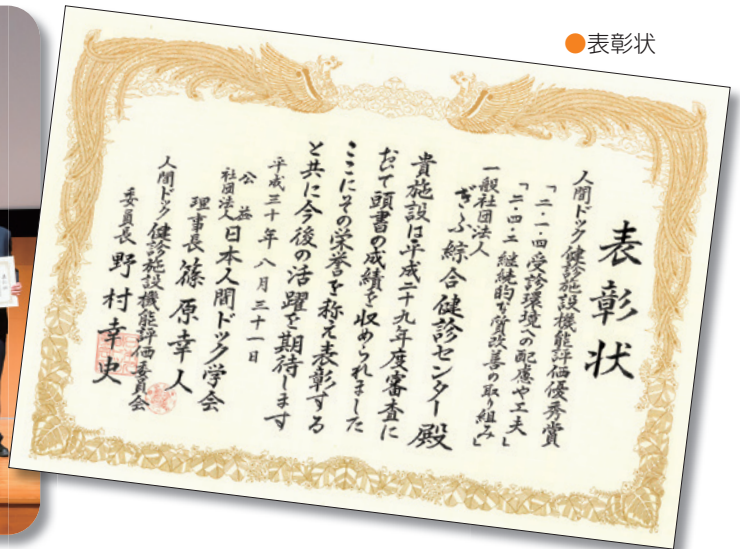 ●表彰状
表彰状
人間ドック健診施設機能評価優秀賞
「二・一・四 受診環境への配慮や工夫」
「二・四・二 継続的な質改善の取り組み」
一般社団法人
ぎふ綜合健診センター 殿
貴施設は平成二十九年度審査に
おいて頭書の成績を収められました
ここにその栄誉を称え表彰する
と共に今後の活躍を期待します
平成三十年八月三十一日
公益社団法人 日本人間ドック学会
理事長 篠原幸人
人間ドック健診施設機能評価委員会
委員長 野村幸史